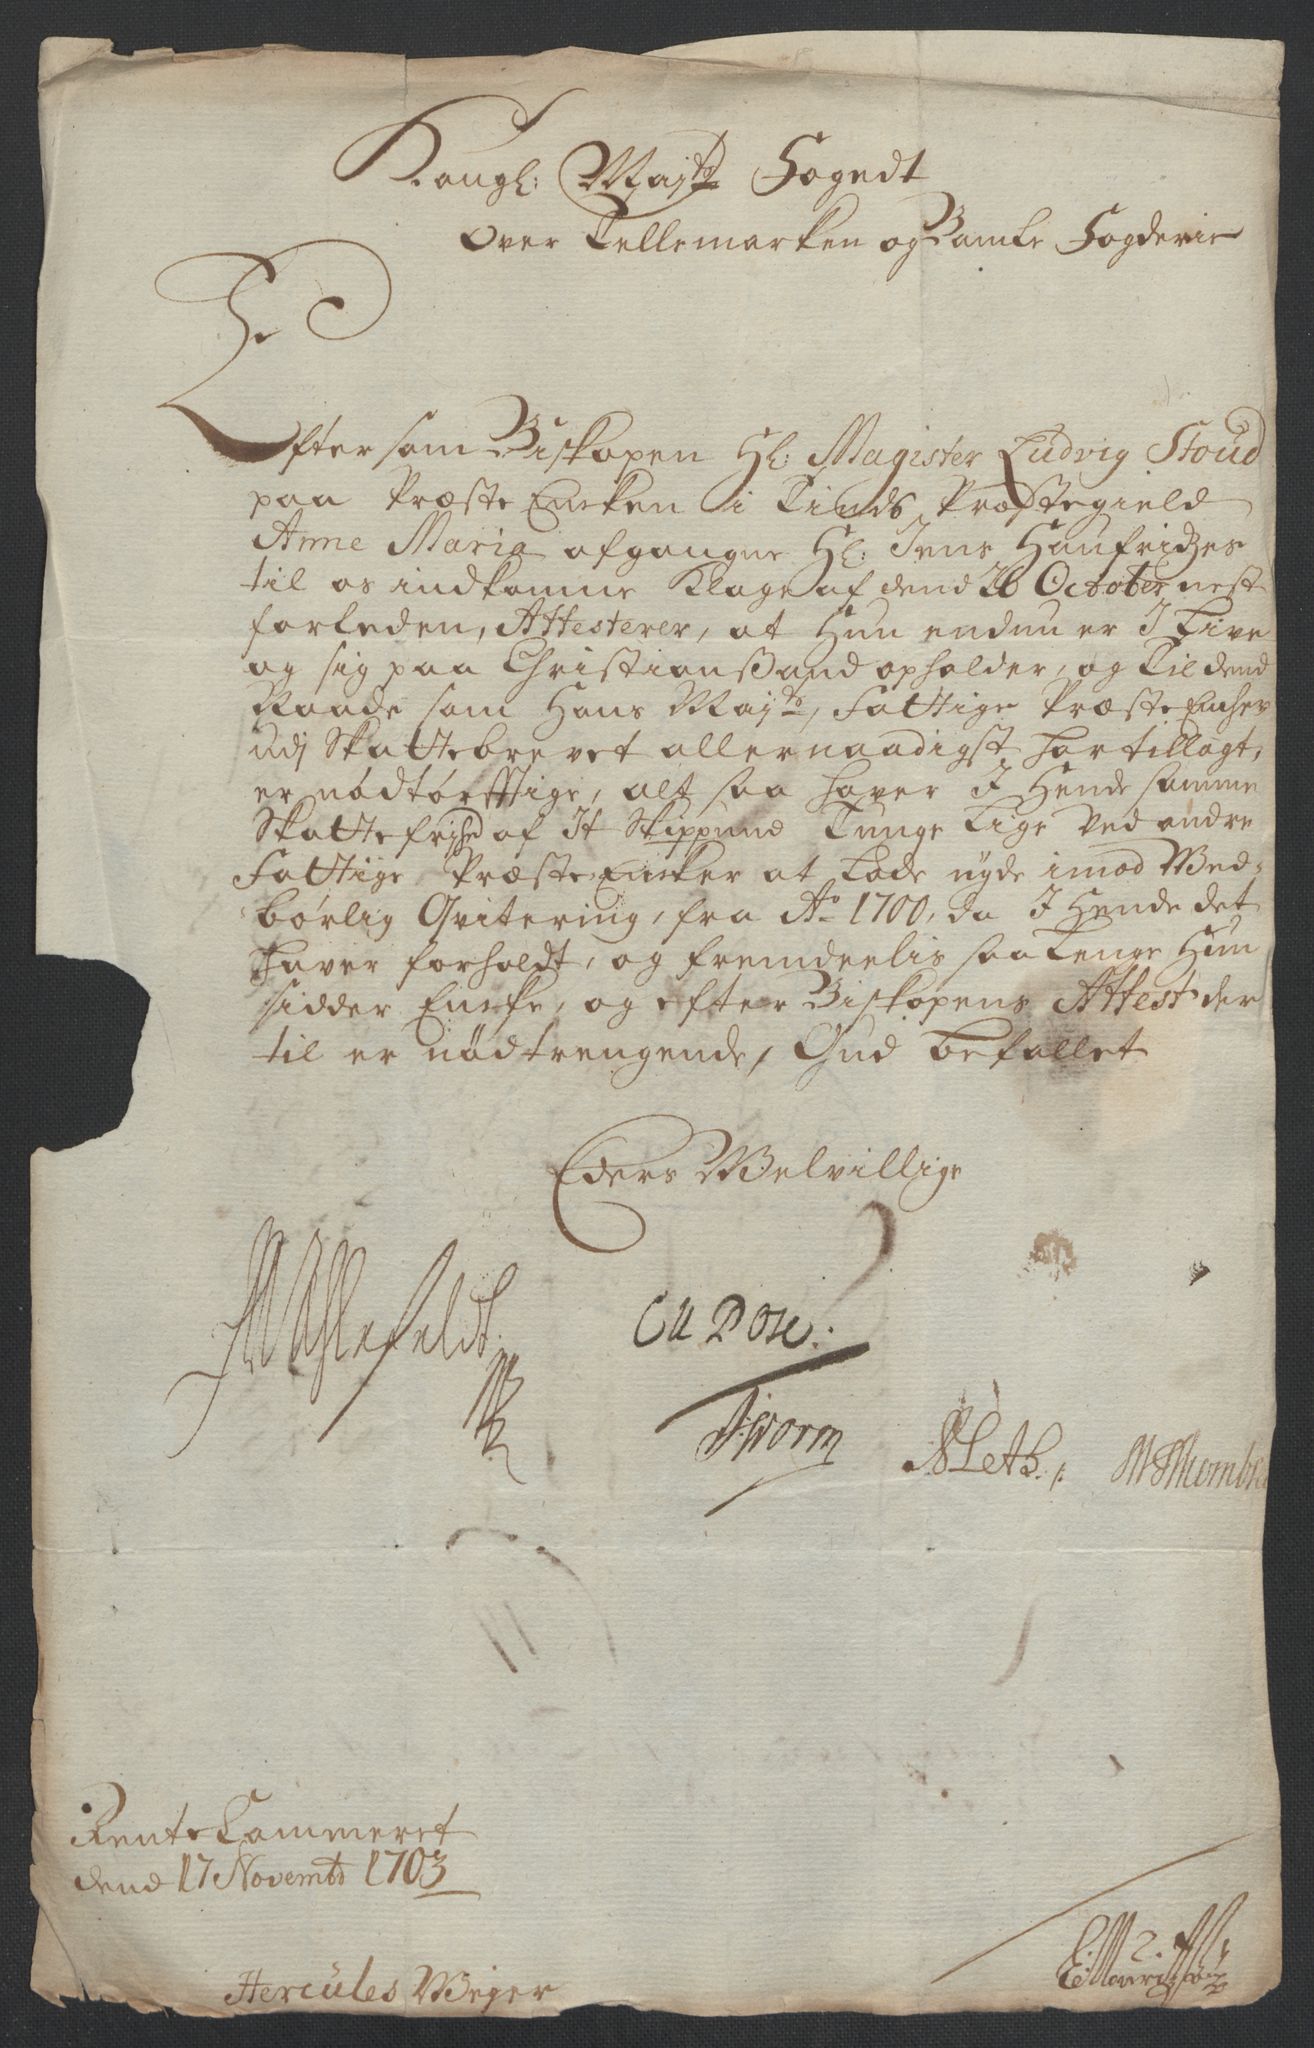 Kongl: Maj:ts Fogedt
Over Tellemarken og Bamle Fogderie
Efter som Biskopen Hl: Magister Ludvig Stoud
paa Præste Encken i Tinds Præstegield
Anne Maria afgangne Hl: Jens Hanfridzes
til os indkomne Klage af dend 26 October nest
forleden, Attesterer, at Hun endnu er I Live
og sig paa Christiansand opholder, og til dend
Naade som Hans Maj:ts, fattige Præste Encker
udj Skattebrevet allernaadigst har tillagt,
er nødtørfftige, alt saa haver I Hende samme
Skatte frjhed af It Skippund Tunge lige ved andre
Fattige Præste Encker at lade nyde imod Wed-
børlig Qvitering, fra Ao 1700, da I Hende det
haver forholdt, og fremdeelis saa lenge Hun
sidder Encke, og efter Biskopens Attest der
til er nødtrengende, Gud befallet
Eders Welvillige
Ahlefeldt.
CU Pose.
Worm
NLeth.
Rente Cammeret
dend 17 Novembr 1703
Hercules Weyer